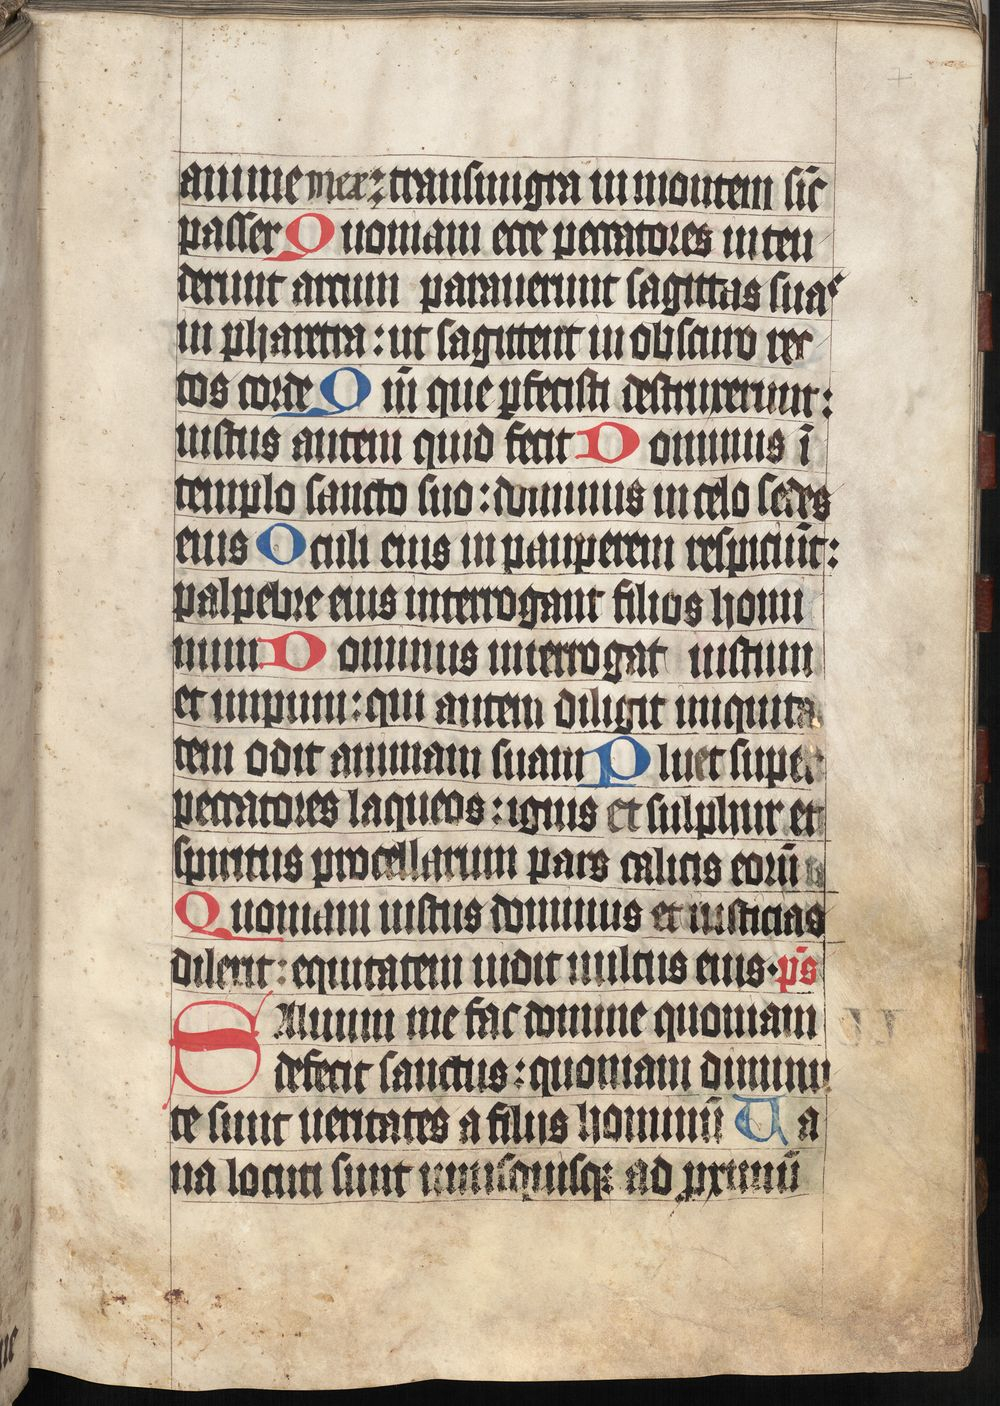 anime mee: transmigra in montem sic̄
passer Quoniam ecce peccatores inten
derunt arcum parauerunt sagittas suas
in pharetra: ut sagittent in obscuro rec
tos corde Qm̄ que ꝑfecisti destruxerunt:
iustus autem quid fecit Dominus ī
templo sancto suo: dominus in celo sedes
eius Oculi eius in pauperem respiciūt:
palpebre eius interrogant filios homi
num Dominus interrogat iustum
et impium: qui autem diligit iniquita
tem odit animam suam Pluet super
peccatores laqueos: ignis et sulphur et
spiritus procellarum pars calicis eorū
Quoniam iustus dominus et iusticias
dilexit: equitatem uidit uultus eius. ps̄
Saluum me fac domine quoniam
defecit sanctus: quoniam diminu
te sunt ueritates a filiis hominū Ua
na locuti sunt unusquisqꝫ ad ꝓximū